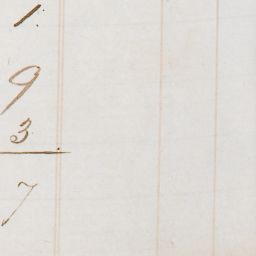 1.
9
3.
7